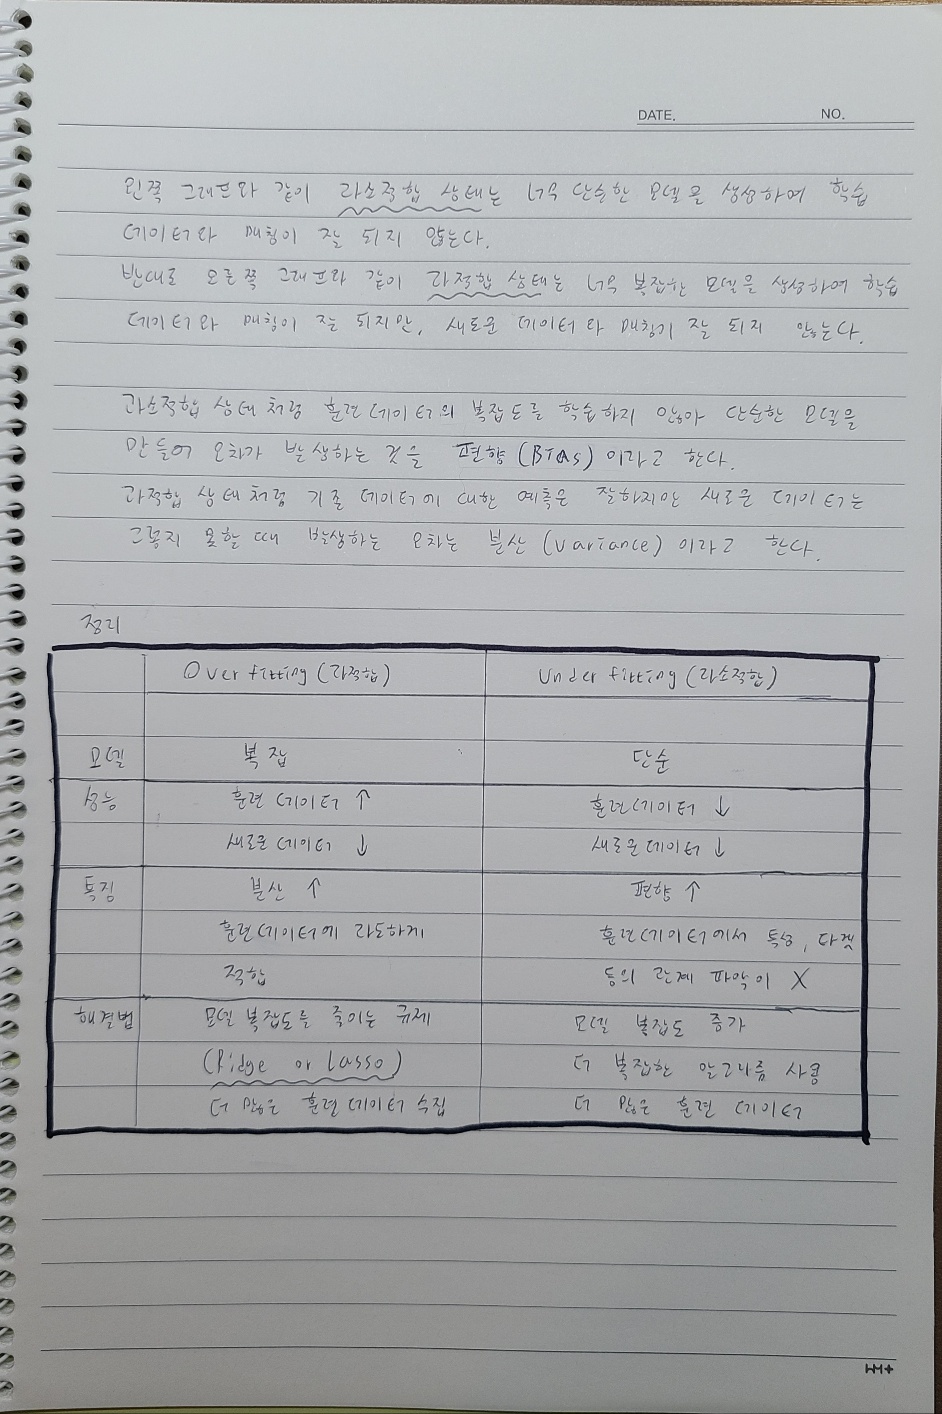 DATE. NO.
왼쪽 그래프와 같이 과소적합 상태는 너무 단순한 모델을 생성하여 학습
데이터와 매칭이 잘 되지 않는다.
반대로 오른쪽 그래프와 같이 과적합 상태는 너무 복잡한 모델을 생성하여 학습
데이터와 매칭이 잘 되지만, 새로운 데이터와 매칭이 잘 되지 않는다.
과소적합 상태처럼 훈련 데이터의 복잡도를 학습하지 않아 단순한 모델을
만들어 오차가 발생하는 것을 편향(BIas)이라고 한다.
과적합 상태처럼 기존 데이터에 대한 예측은 잘하지만 새로운 데이터는
그렇지 못할 때 발생하는 오차는 분산(variance)이라고 한다.
정리
Over fitting (과적합) Under fitting (과소적합)
모델 복잡 단순
성능 훈련 데이터 ↑ 훈련데이터 ↓
새로운 데이터 ↓ 새로운데이터 ↓
특징 분산 ↑ 편향 ↑
훈련데이터에 과도하게 훈련데이터에서 특성, 타겟
적합 등의 관계 파악이 X
해결법 모델 복잡도를 줄이는 규제 모델 복잡도 증가
(Ridge or Lasso) 더 복잡한 알고리즘 사용
더 많은 훈련 데이터 수집 더 많은 훈련 데이터